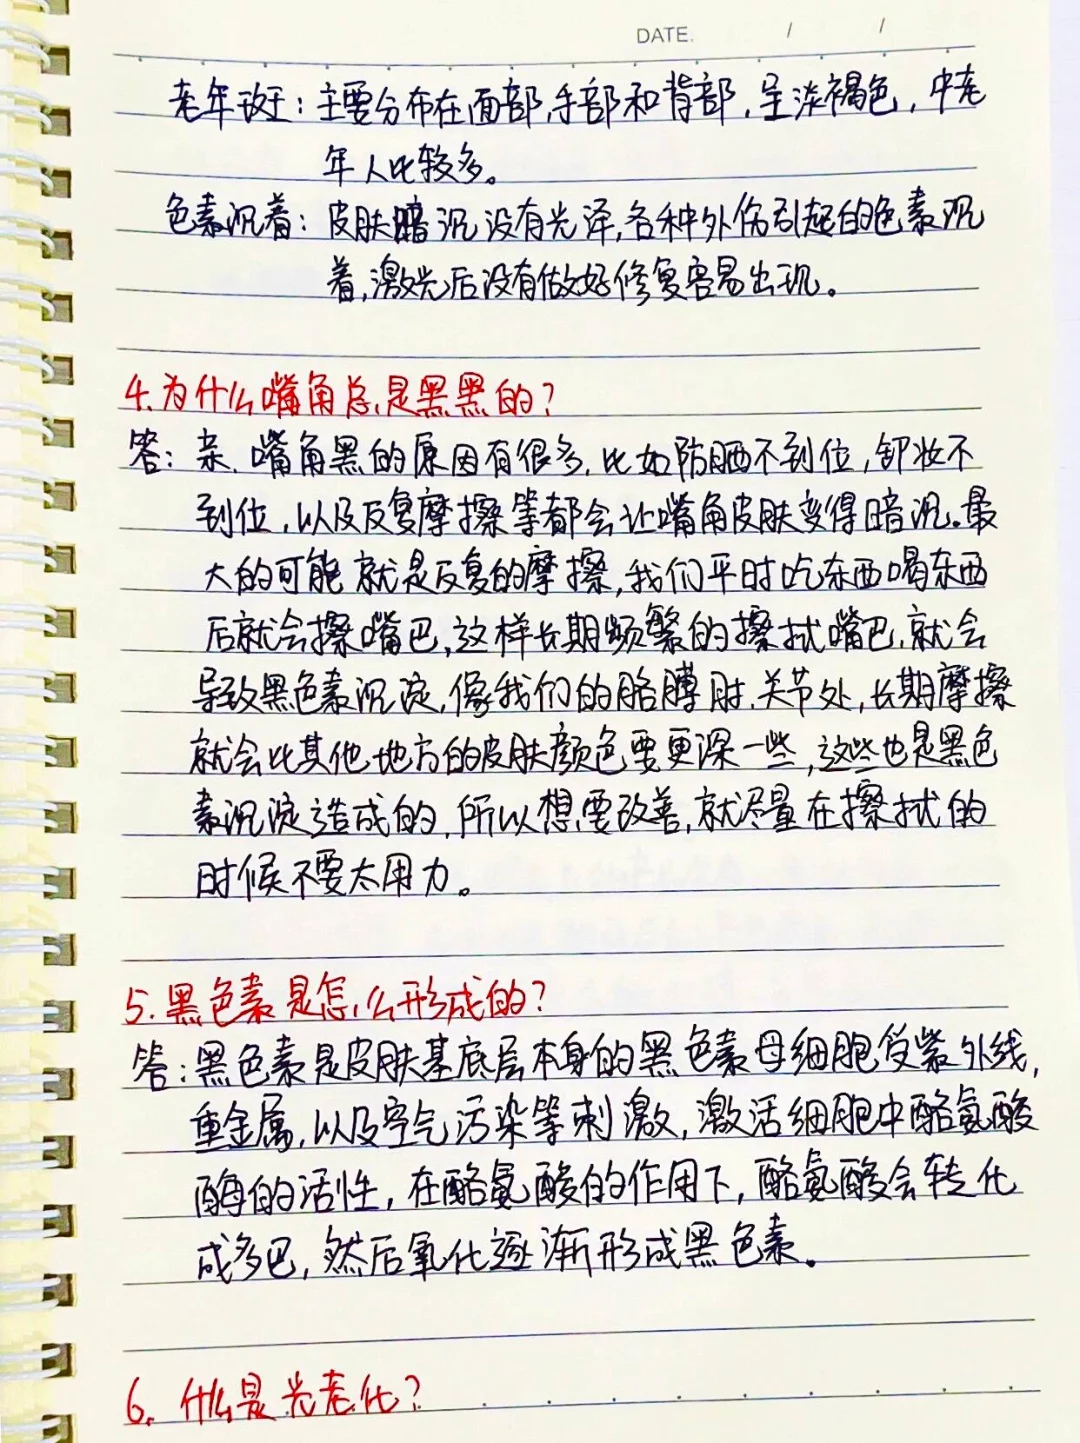 DATE.    /    /
老年斑：主要分布在面部,手部和背部，呈淡褐色，中老
年人比较多。
色素沉着：皮肤暗沉没有光泽,各种外伤引起的色素沉
着,激光后没有做好修复容易出现。
4.为什么嘴角总是黑黑的？
答：亲,嘴角黑的原因有很多,比如防晒不到位,卸妆不
到位,以及反复摩擦等都会让嘴角皮肤变得暗沉。最
大的可能就是反复的摩擦,我们平时吃东西喝东西
后就会擦嘴巴,这样长期频繁的擦拭嘴巴,就会
导致黑色素沉淀,像我们的胳膊肘,关节处,长期摩擦
就会比其他地方的皮肤颜色要更深一些,这些也是黑色
素沉淀造成的,所以想要改善,就尽量在擦拭的
时候不要太用力。
5.黑色素是怎么形成的？
答：黑色素是皮肤基底层本身的黑色素母细胞受紫外线,
重金属,以及空气污染等刺激,激活细胞中酪氨酸
酶的活性,在酪氨酸的作用下,酪氨酸会转化
成多巴,然后氧化逐渐形成黑色素。
6.什么是光老化？